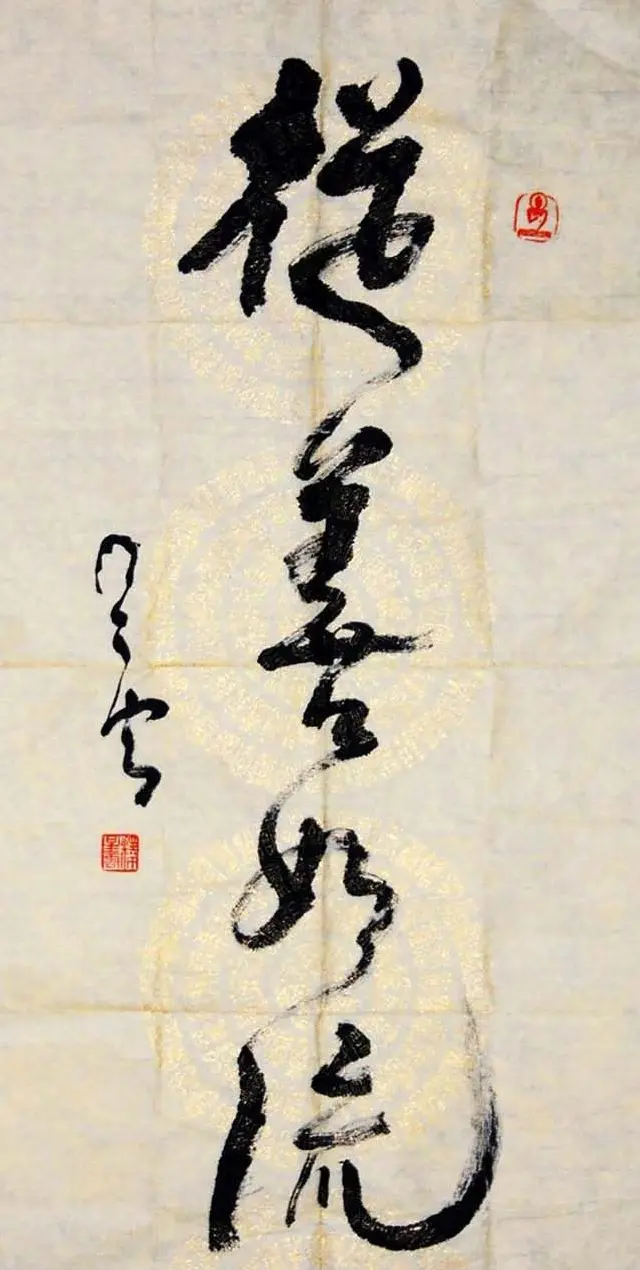 從善如流